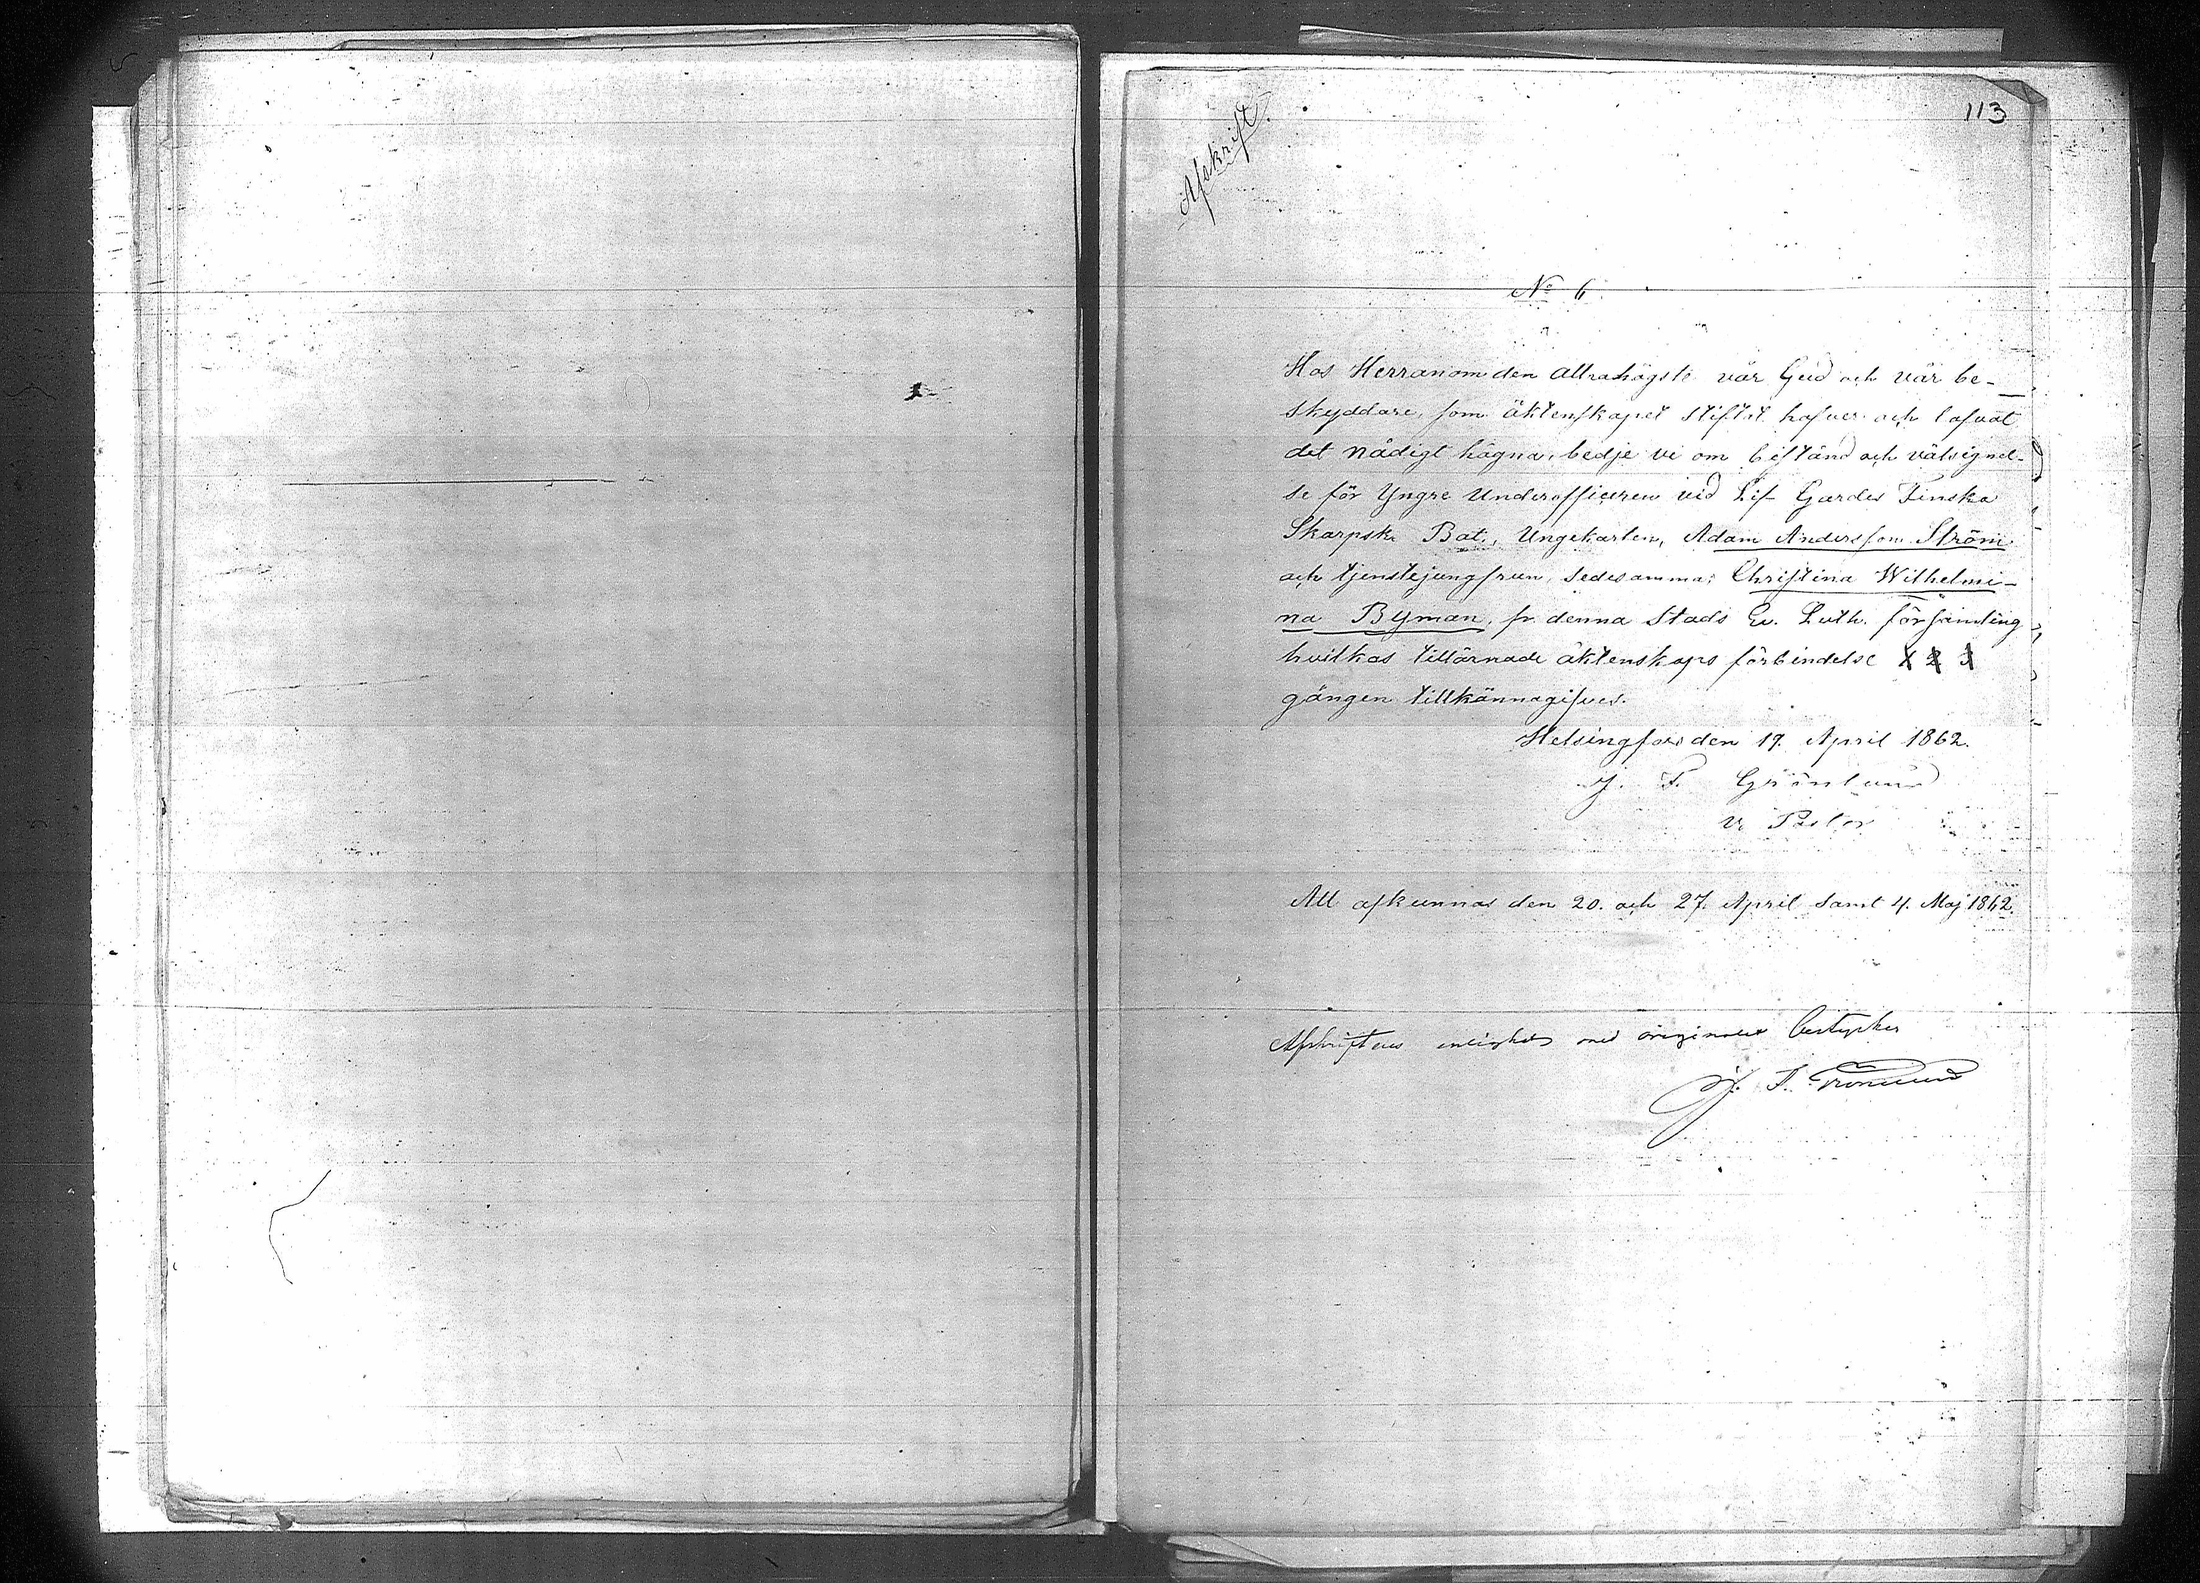 113
Afskrift.
No 6
Hos Herranom den Allrahögste vår Gud och vår be-
skyddare, som äktenskapet stiftat hafver och lofvat
det nådigt hägna, bedje vi om bistånd och välsignel-
se för Yngre Underofficeren vid Lif Gardes Finska
Skarpsk. Bat., Ungekarlen, Adam Andersson Ström
och tjenstejungfrun, sedesamma; Christina Wilhelmi-
na Byman, fr. denna Stads Ev. Luth. församling,
hvilkas tillärnade äktenskaps förbindelse 1 2 3
gången tillkännagifves.
Helsingfors den 17. April 1862.
J. F. Grönlund
v. Pastor
Att afkunnas den 20. och 27. April samt 4. Maj 1862.
Afskriftens enlighet med originalet bestyrker
J. F. Grönlund